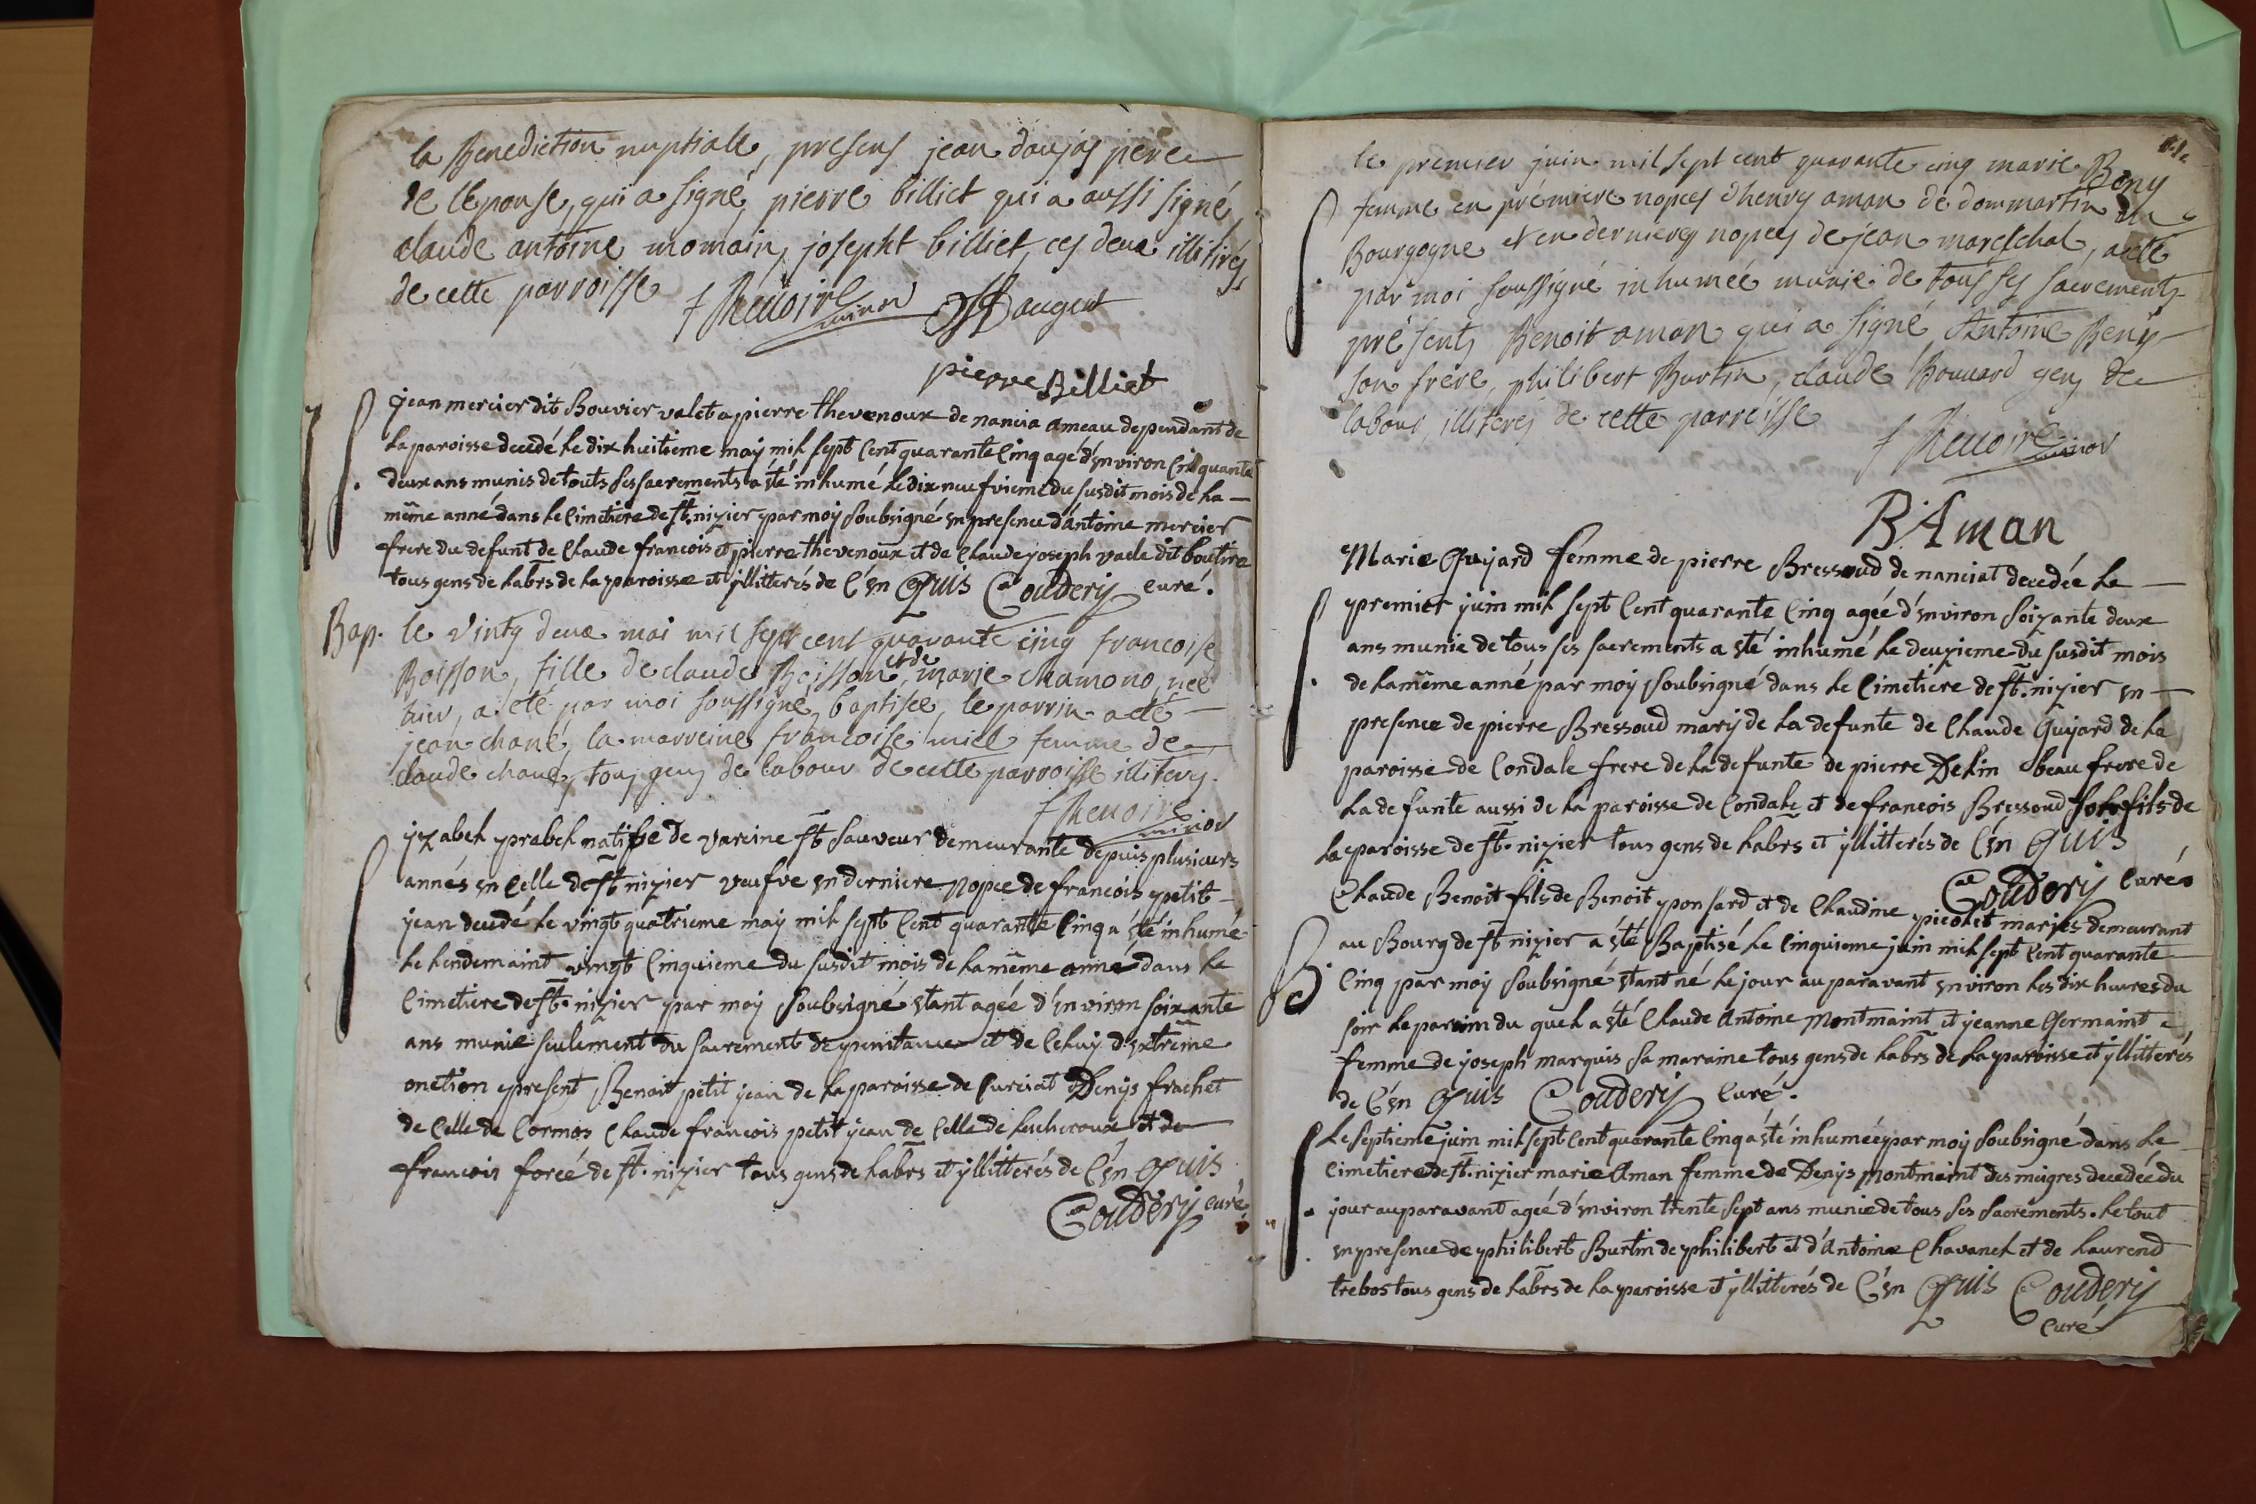 la Benediction nuptiale, presens jean daujas pere
de lepouse, qui a signé, pierre billiet qui a aussi signé,
claude antoine momain, josepht billiet, ces deux illitirés
de cette parroisse f Renoire minor Daugert
pierre Billiet
jean mercier dit Bouvier valet a pierre thevenoux de nancia ameau dependant de
la paroisse decedé le dix huitieme maÿ mil sept cent quarante cinq agé d'environ cinquante
deux ans munis de touts ses sacrements a été inhumé le dix neufvieme du susdit mois de la
même anné dans le cimetiere de st. nizier par moÿ soubsigné en presence d'antoine mercier
frere du defunt de claude francois et pierre thevenoux et de claude joseph vacle dit boutire
tous gens de labrs de la paroisse et ÿllitterés de c'en quis Couderÿ curé.
Bap. le vintg deux mai mil sept cent quarante cinq francoise
Boisson, fille de claude Boisson et de marie chamono, née
hier, a été par moi soussigné baptisée, le parrin a eté
jean chané, la marreine francoise miel femme de
claude chané, tous gens de labour de cette parroisse illiterés.
f Renoire minor
ÿzabel prabel natifve de vareine st sauveur demeurante depuis plusieurs
annés en celle de st nizier veufve en derniere nopce de francois petit
jean decedé le vingt quatrieme maÿ mil sept cent quarante cinq a été inhumé
le lendemaint vingt cinquieme du susdit mois de la même anné dans le
cimetiere de st. nizier par moÿ soubsigné etant agée d'environ soixante
ans munie seulement du sacrement de penitance et de celuÿ d'extrême
onction present Benoit petit jean de la paroisse de curciat Denÿs frachet
de celle de Cormos claude francois petit jean de celle de lescheroux et de
francois foreé de st. nizier tous gens de labrs et ÿllitterés de c'en quis
Couderÿ curé
le premier juin mil sept cent quarante cinq marie Beny
femme en prémiere nopces d'henry aman de dommartin en
Bourgogne et en dernieres nopces de jean mareschal, a eté
par moi soussigné inhumeé munie de tous ses sacrements
présents Benoit aman qui a signé Antoine Beny
son frere, philibert Burtin, claude Bouvard gens de
labour, illiterés de cette parroisse
f Renoire minor
B Aman
Marie Guÿard femme de pierre Bressoud de nanciat decedée le
premier juin mil sept cent quarante cinq agée d'environ soixante deux
ans munie de tous ses sacrements a été inhumé le deuxieme du susdit mois
de la même anné par moÿ soubsigné dans le cimetiere de st. nizier en
presence de pierre Bressoud marÿ de la defunte de claude Guÿard de la
paroisse de Condale frere de la defunte de pierre Delin beau frere de
la defunte aussi de la paroisse de Condale et de francois Bressoud fils de
la paroisse de st. nizier tous gens de labrs et ÿllitterés de c'en quis
Couderÿ curé
Claude Benoit fils de Benoit ponsard et de Claudine picolet mariés demeurant
au Bourg de st nizier a été Baptisé le cinquieme juin mil sept cent quarante
B. cinq par moÿ soubsigné etant né le jour au paravant environ les dix heures du
soir le parain du quel a été Claude Antoine Montmaint et jeanne Germaint
femme de joseph marquis sa maraine tous gens de labrs de la paroisse et ÿllitterés
de c'en quis Couderÿ curé.
Le septieme juin mil sept cent quarante cinq a été inhumée par moÿ soubsigné dans le
cimetiere de st. nizier marie Aman femme de Denÿs Montmaint des meigres decedée du
jour auparavant agée d'environ trente sept ans munie de tous ses sacrements. le tout
en presence de philibert Burtin de philibert et d'Antoine Chavanel et de Laurend
trebos tous gens de labrs de la paroisse et ÿllitterés de c'en quis Couderÿ
curé